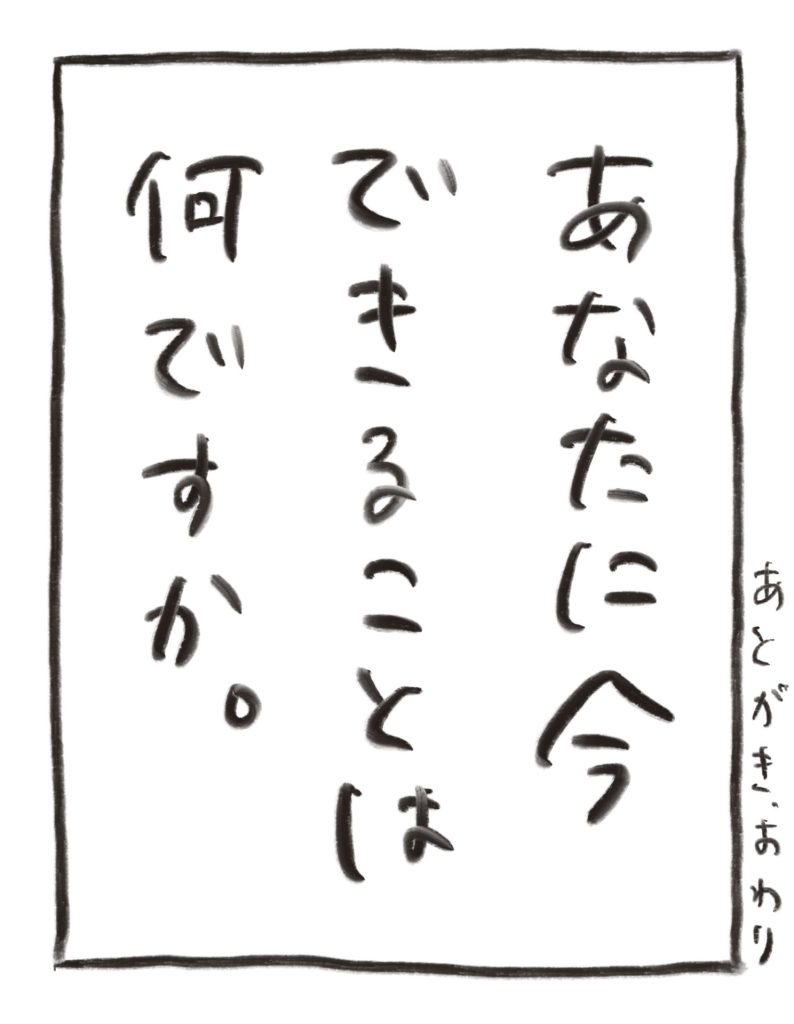 あなたに今
できることは
何ですか。
あとがき、おわり